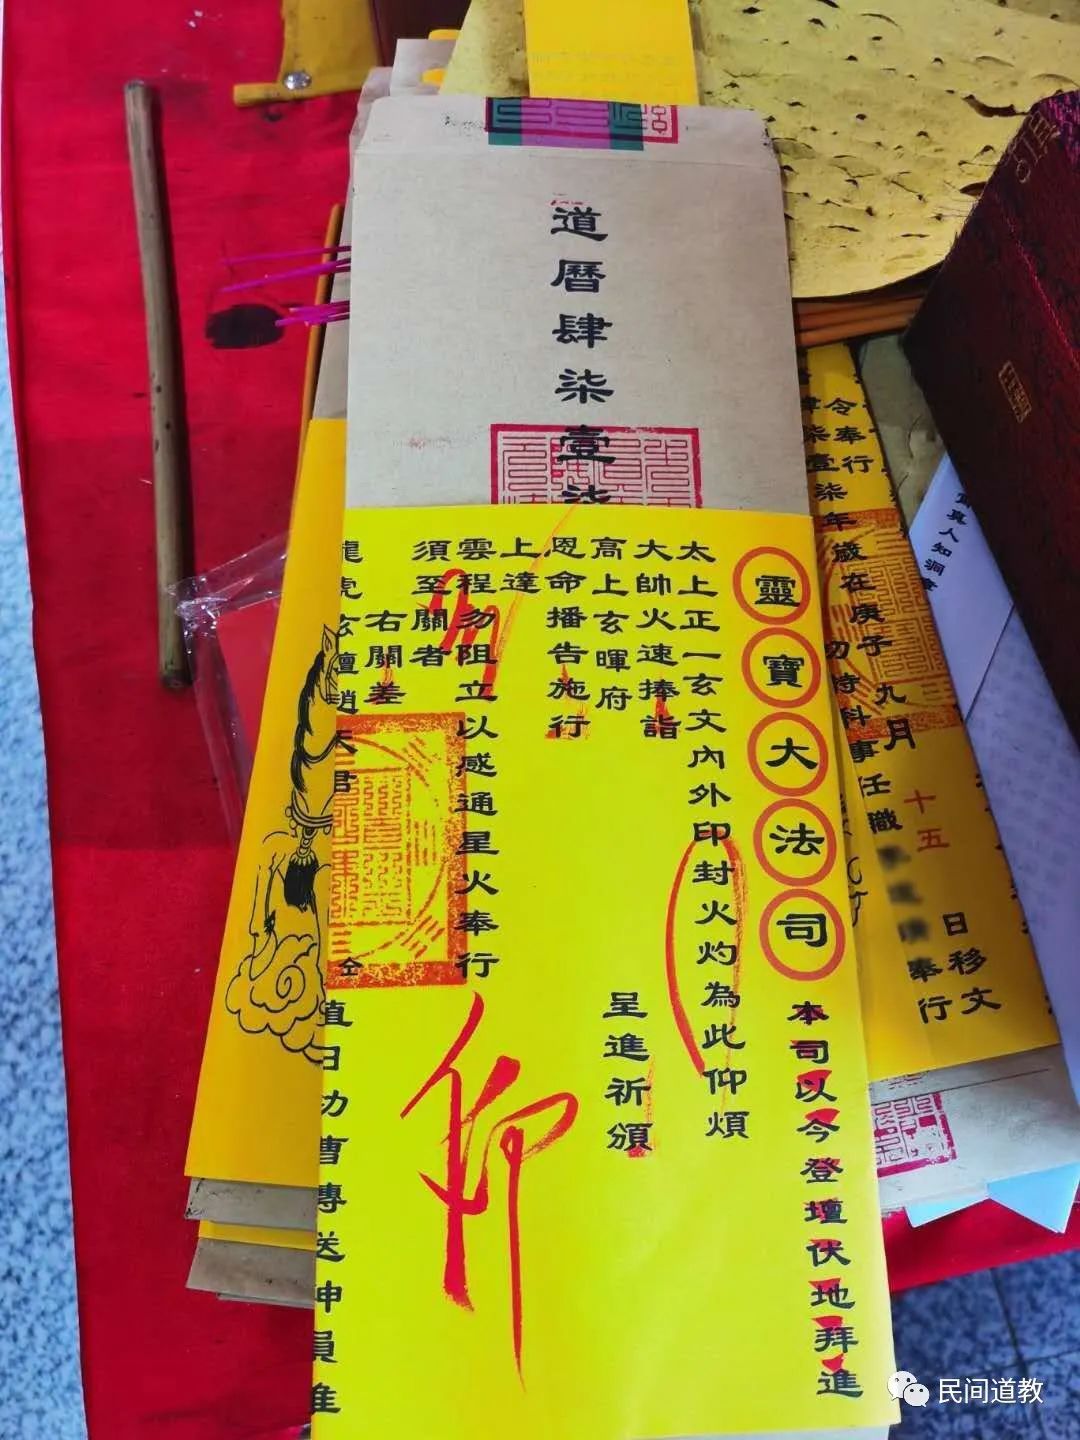 道曆肆柒壹柒
靈寶大法司 本司以今登壇伏地拜進
太上正一玄文內外印封火灼為此仰煩
大帥火速捧詣
高上玄暉府 呈進祈頒
恩命播告施行
上達
雲程勿阻立以感通星火奉行
須至關者
右關差
龍虎玄壇趙天君
值日功曹傳送
仰
令奉行
柒壹柒年歲在庚子九月十五日移文
科事任職
奉行
真人知洞
民间道教